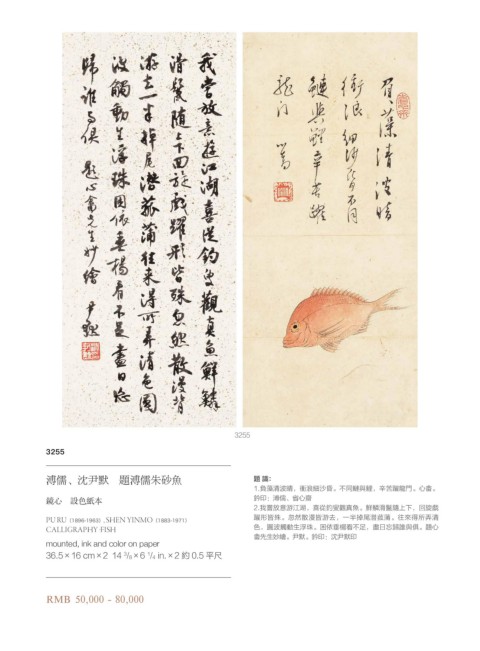 我嘗放意遊江湖喜從釣叟觀真魚鮮鱗
滑鬣隨上下回旋戲躍形皆殊忽然散漫皆
游去一半掉尾潛菰蒲往來得所弄清色圓
波觸動生浮珠困依垂楊看不足盡日忘
歸誰與俱 題心畬先生妙繪 尹默
負藻清波晴
衝浪細沙昏不同
鰱與鯉辛苦躍
龍門 心畬
3255
3255
溥儒、沈尹默 題溥儒朱砂魚
鏡心 設色紙本
PU RU (1896-1963) , SHEN YINMO (1883-1971)
CALLIGRAPHY·FISH
mounted, ink and color on paper
36.5 × 16 cm × 2 14 3/8 × 6 1/4 in. × 2 約 0.5 平尺
RMB 50,000 - 80,000
題識:
1.負藻清波晴,衝浪細沙昏。不同鰱與鯉,辛苦躍龍門。心畬。
鈐印:溥儒、省心齋
2.我嘗放意游江湖,喜從釣叟觀真魚。鮮鱗滑鬣隨上下,回旋戲
躍形皆殊。忽然散漫皆游去,一半掉尾潛菰蒲。往來得所弄清
色,圓波觸動生浮珠。困依垂楊看不足,盡日忘歸誰與俱。題心
畬先生妙繪。尹默。鈐印:沈尹默印